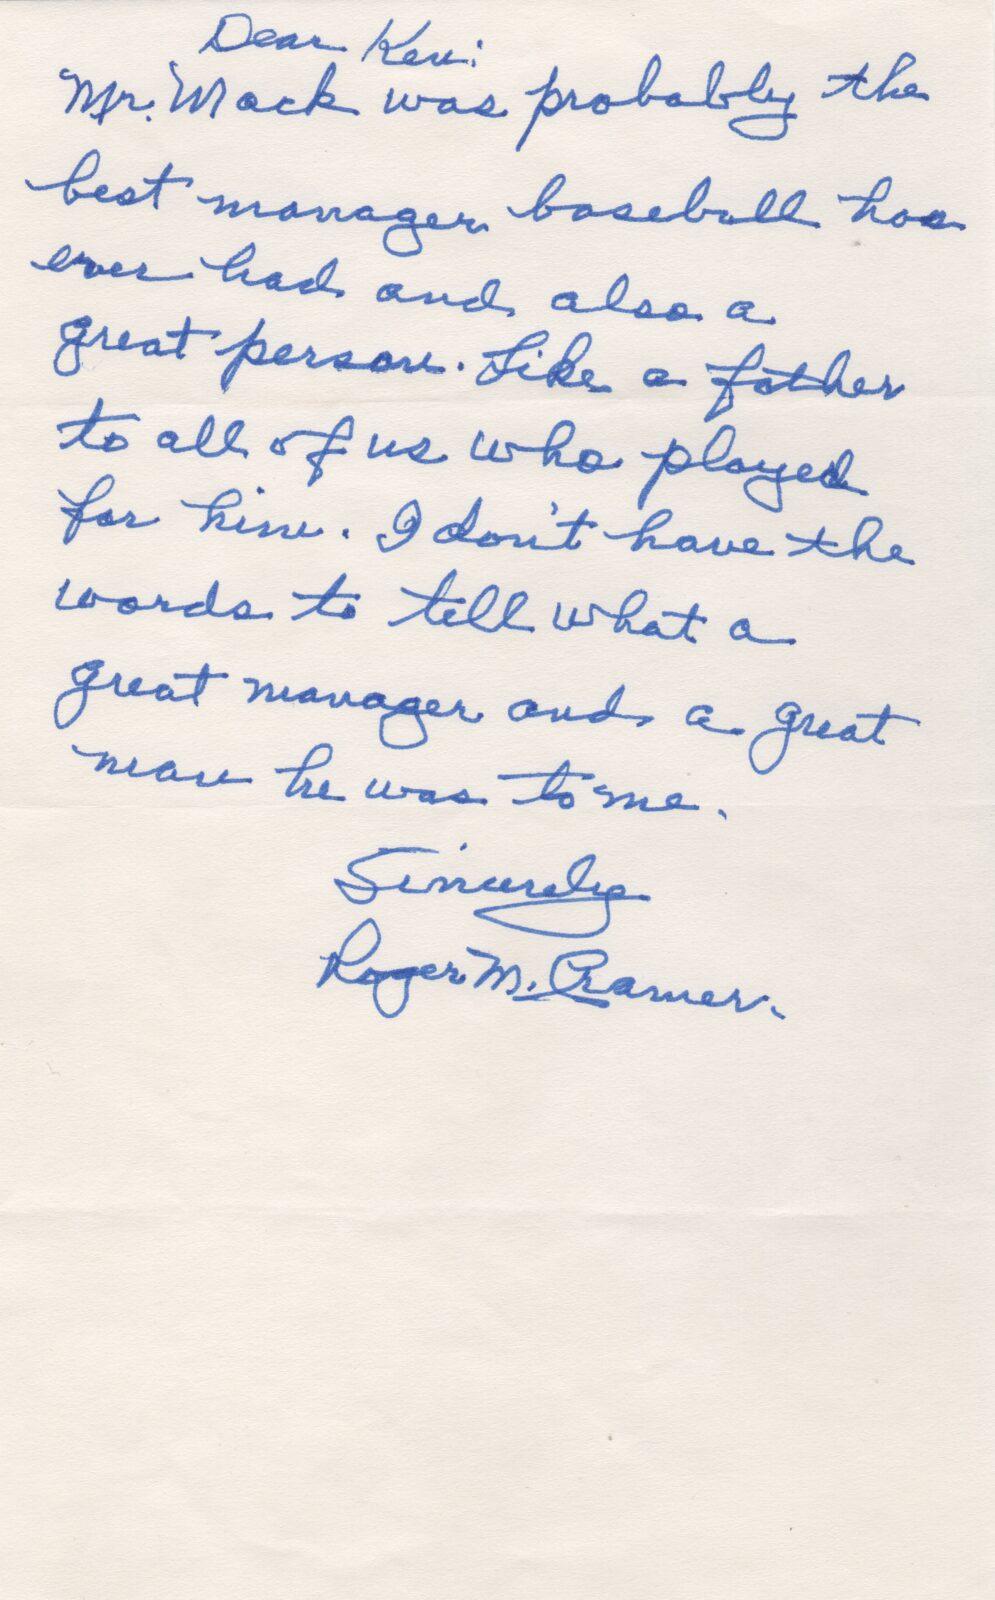 Dear Ken:
Mr. Mack was probably the
best manager baseball has
ever had and also a
great person. Like a father
to all of us who played
for him. I don't have the
words to tell what a
great manager and a great
man he was to me.
Sincerely
Roger M. Cramer.